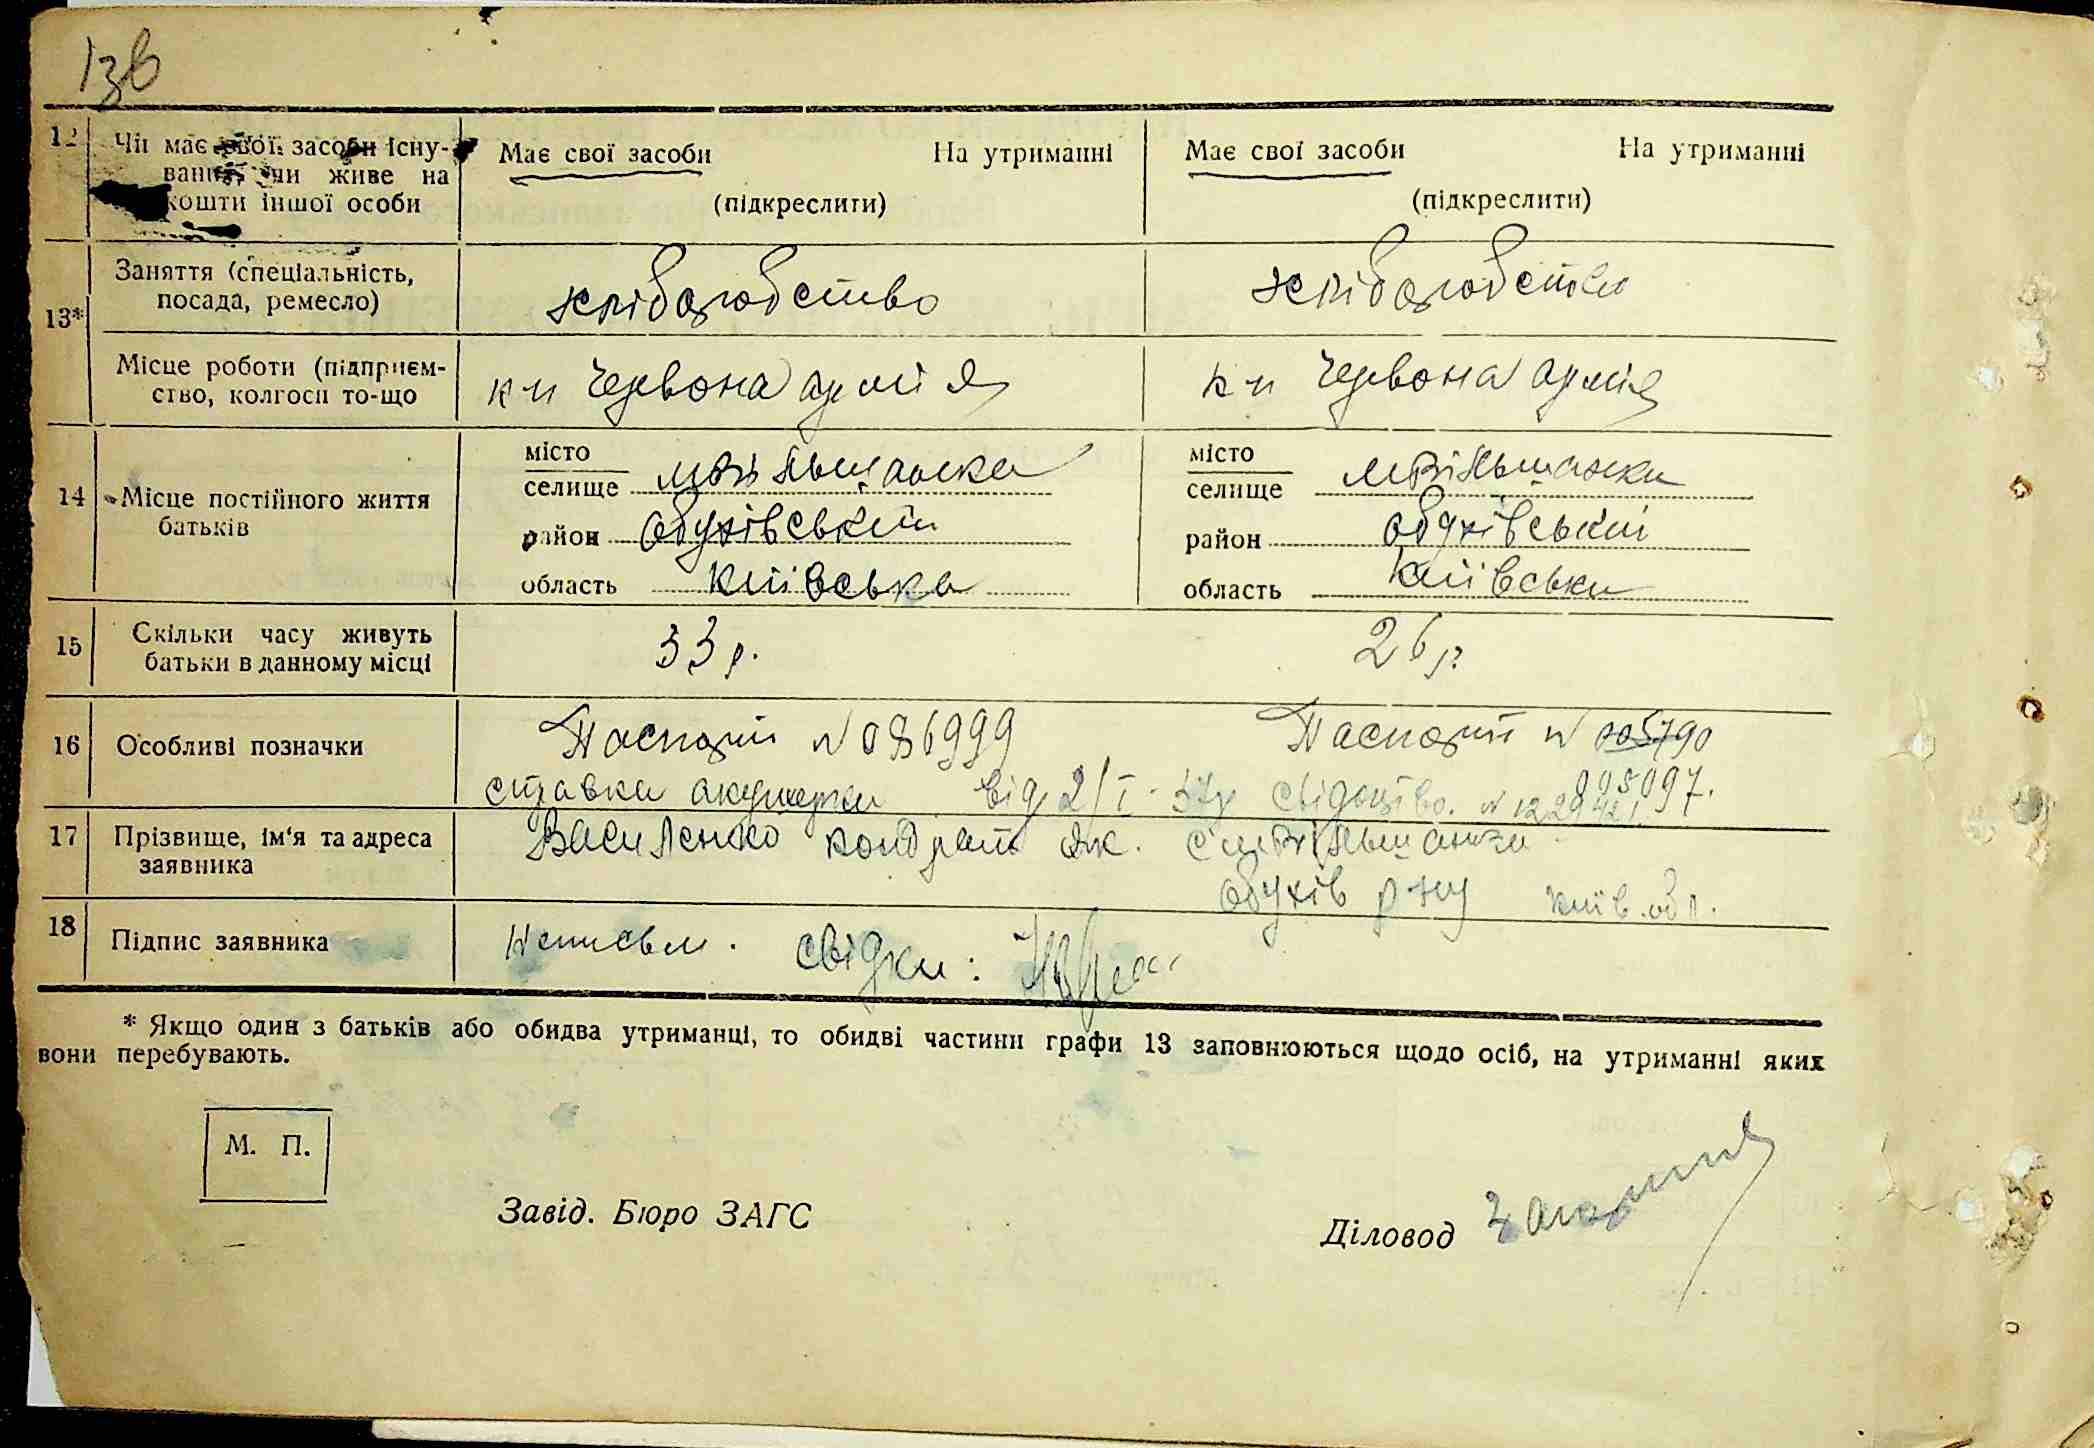 12 Чи має свої засоби існу- Має свої засоби На утриманні Має свої засоби На утриманні
вання чи живе на
кошти іншої особи (підкреслити) (підкреслити)
13* Заняття (спеціальність, хліборобство хліборобство
посада, ремесло)
Місце роботи (підприєм- Червона армія Червона армія
ство, колгосп то-що
14 Місце постійного життя
батьків
місто місто
селище селище
район Обухівський район Обухівський
область Київська область Київська
15 Скільки часу живуть 33 р. 26 р.
батьки в данному місці
16 Особливі позначки Паспорт N 086999 Паспорт N 005790
справка акушерки від 2/I 37р свідоцтво. N 122942 995097.
17 Прізвище, ім'я та адреса Василенко Кондрат Як.
заявника Обухів р-ну Київ. обл.
18 Підпис заявника Неписьм. свідки:
* Якщо один з батьків або обидва утриманці, то обидві частини графи 13 заповнюються щодо осіб, на утриманні яких
вони перебувають.
М. П.
Завід. Бюро ЗАГС
Діловод